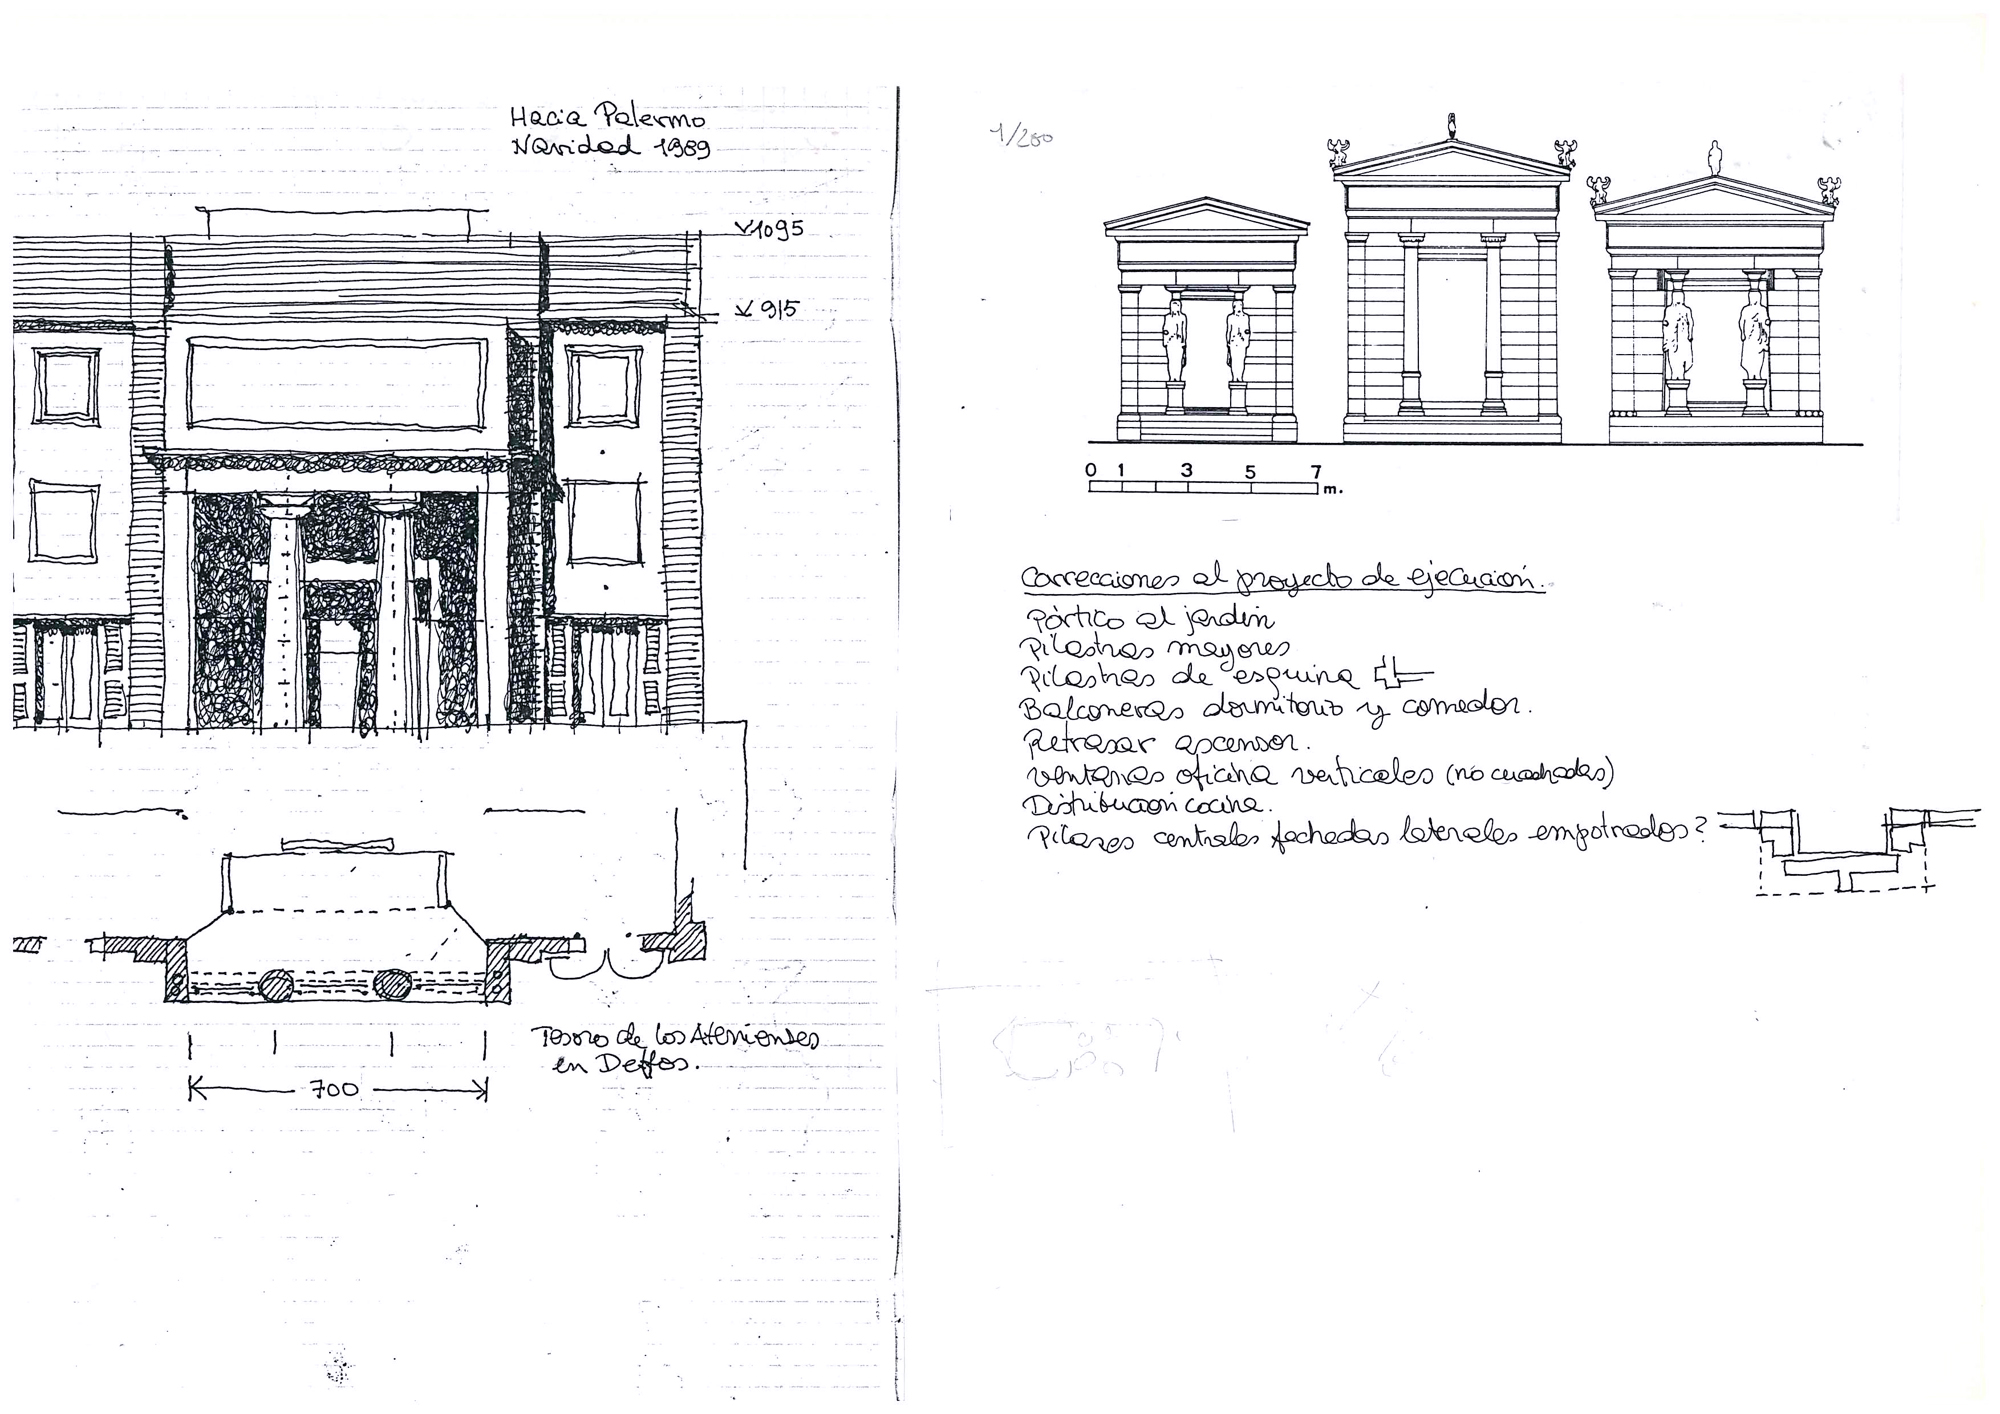 Hacia Palermo
Navidad 1989
1095
915
700
Tesoro de los Atenienses
en Delfos.
1/200
0 1 3 5 7 m.
Correcciones al proyecto de ejecución.
Pórtico al jardín
Pilastras mayores
Pilastras de esquina
Balconeras dormitorio y comedor.
Retrasar ascensor.
Ventanas oficina verticales (no cuadradas)
Distribución cocina.
Pilares centrales fachadas laterales empotrados?